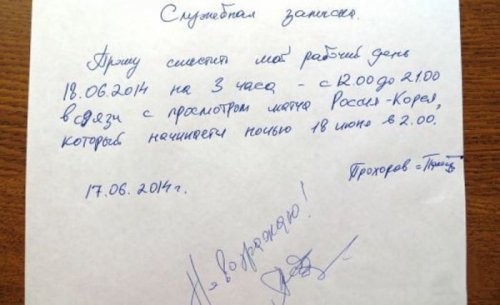 Служебная записка.
Прошу сместить мой рабочий день
18.06.2014 на 3 часа - с 12.00 до 21.00
в связи с просмотром матча Россия-Корея,
который начинается ночью 18 июня в 2.00.
Прохоров
17.06.2014 г.
Не возражаю!